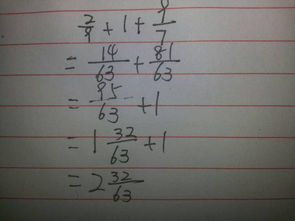 2/9 + 1 + 9/7
= 14/63 + 81/63
= 95/63 + 1
= 1 32/63 + 1
= 2 32/63